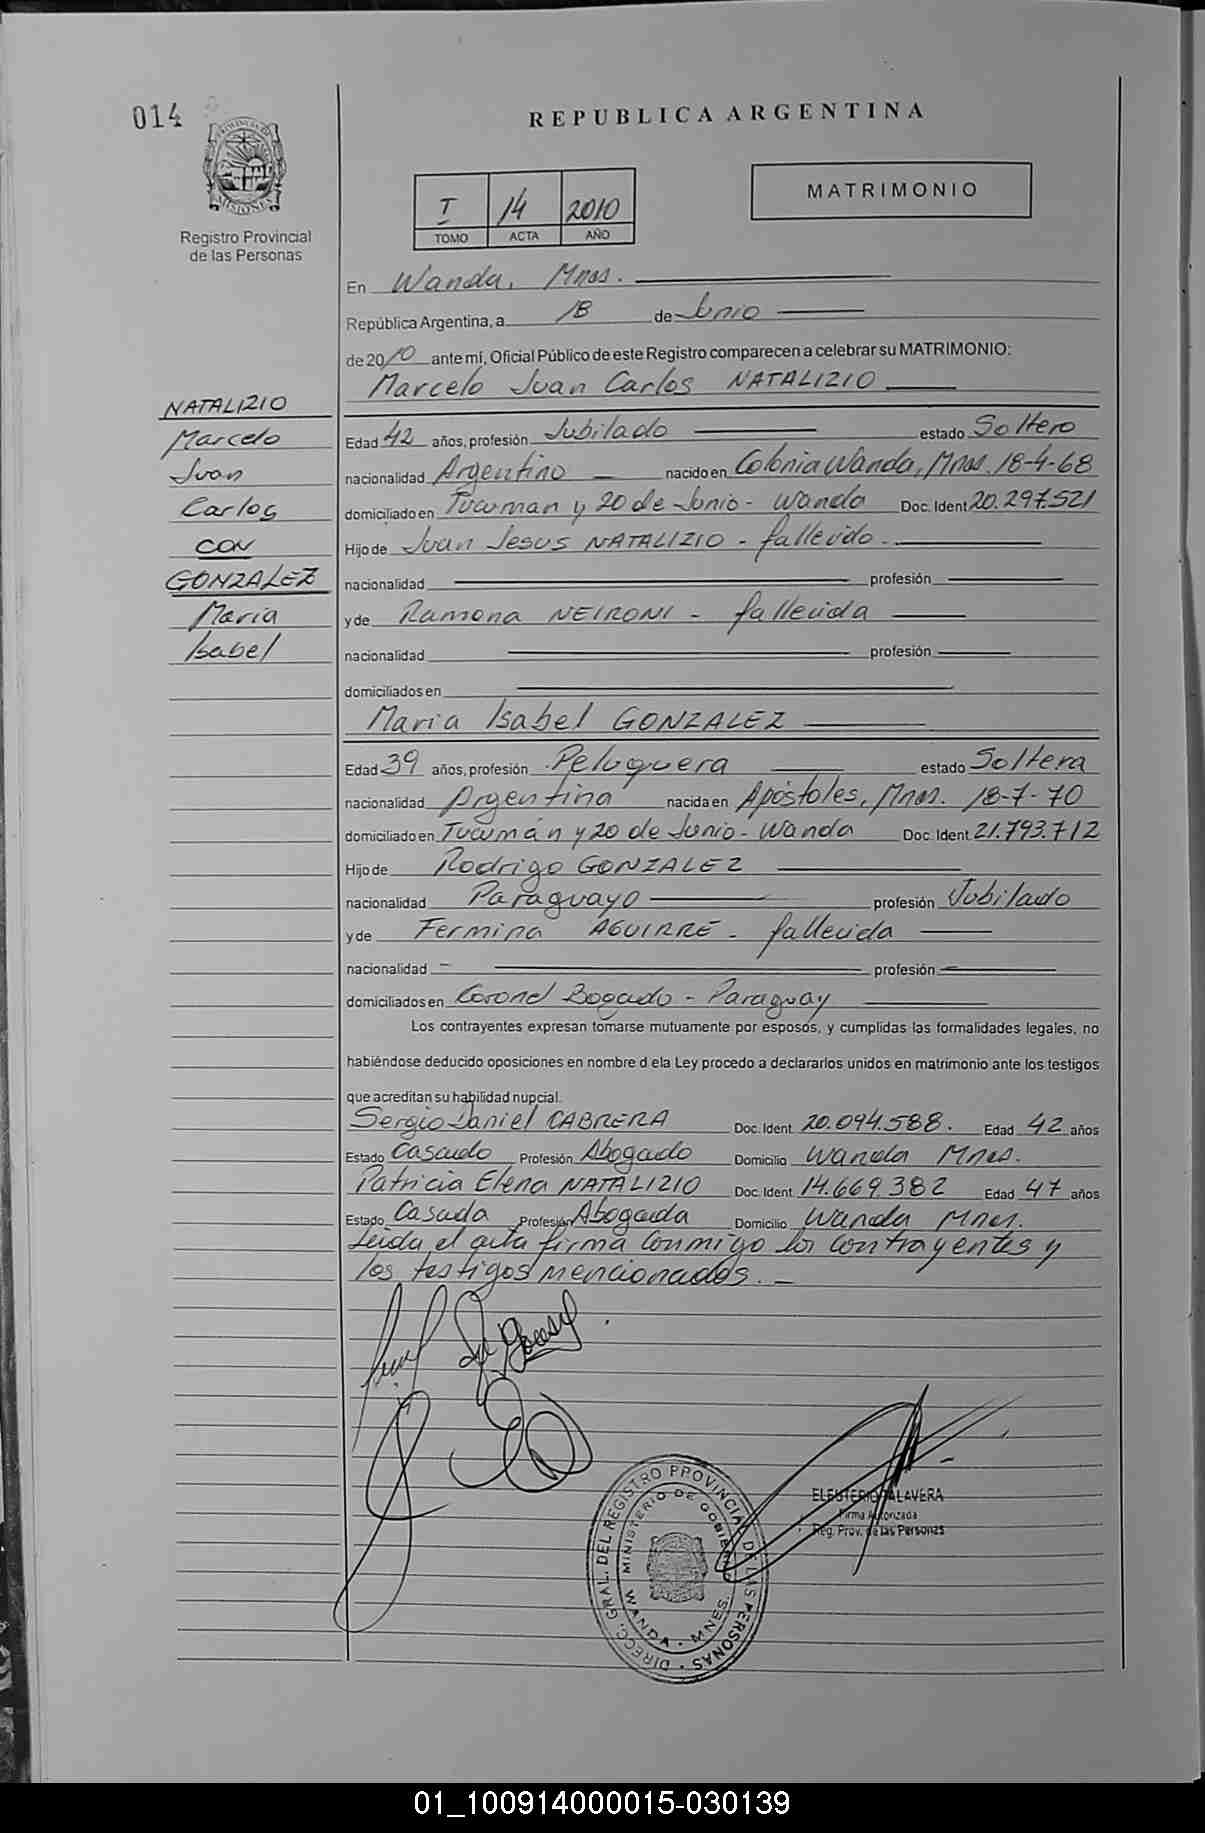 014
REPUBLICA ARGENTINA
PROVINCIA DE MISIONES
Registro Provincial
de las Personas
I 14 2010
TOMO ACTA AÑO
MATRIMONIO
En Wanda, Mnes.
República Argentina, a 18 de Junio
de 2010 ante mí, Oficial Público de este Registro comparecen a celebrar su MATRIMONIO:
Marcelo Juan Carlos NATALIZIO
NATALIZIO
Marcelo
Juan
Carlos
CON
GONZALEZ
Maria
Isabel
Edad 42 años, profesión Jubilado estado Soltero
nacionalidad Argentino nacido en Colonia Wanda, Mnes. 18-4-68
domiciliado en Tucuman y 20 de Junio - Wanda Doc. Ident 20.297.521
Hijo de Juan Jesus NATALIZIO - fallecido.
nacionalidad profesión
y de Ramona NEIRONI - fallecida
nacionalidad profesión
domiciliados en
Maria Isabel GONZALEZ
Edad 39 años, profesión Peluquera estado Soltera
nacionalidad Argentina nacida en Apóstoles, Mnes. 18-7-70
domiciliado en Tucumán y 20 de Junio - Wanda Doc. Ident 21.793.712
Hijo de Rodrigo GONZALEZ
nacionalidad Paraguayo profesión Jubilado
y de Fermina AGUIRRE - fallecida
nacionalidad - profesión
domiciliados en Coronel Bogado - Paraguay
Los contrayentes expresan tomarse mutuamente por esposos, y cumplidas las formalidades legales, no
habiéndose deducido oposiciones en nombre d ela Ley procedo a declararlos unidos en matrimonio ante los testigos
que acreditan su habilidad nupcial.
Sergio Daniel CABRERA Doc. Ident. 20.094.588. Edad 42 años
Estado Casado Profesión Abogado Domicilio Wanda Mnes.
Patricia Elena NATALIZIO Doc. Ident. 14.669.382 Edad 47 años
Estado Casada Profesión Abogada Domicilio Wanda Mnes.
Leida el acta firma conmigo los contrayentes y
los testigos mencionados. -
ELEUTERIO TALAVERA
Firma Autorizada
Reg. Prov. de las Personas
DIRECC. GRAL. DEL REGISTRO PROVINCIAL DE LAS PERSONAS
MINISTERIO DE GOBIERNO
WANDA - MNES.
01_100914000015-030139